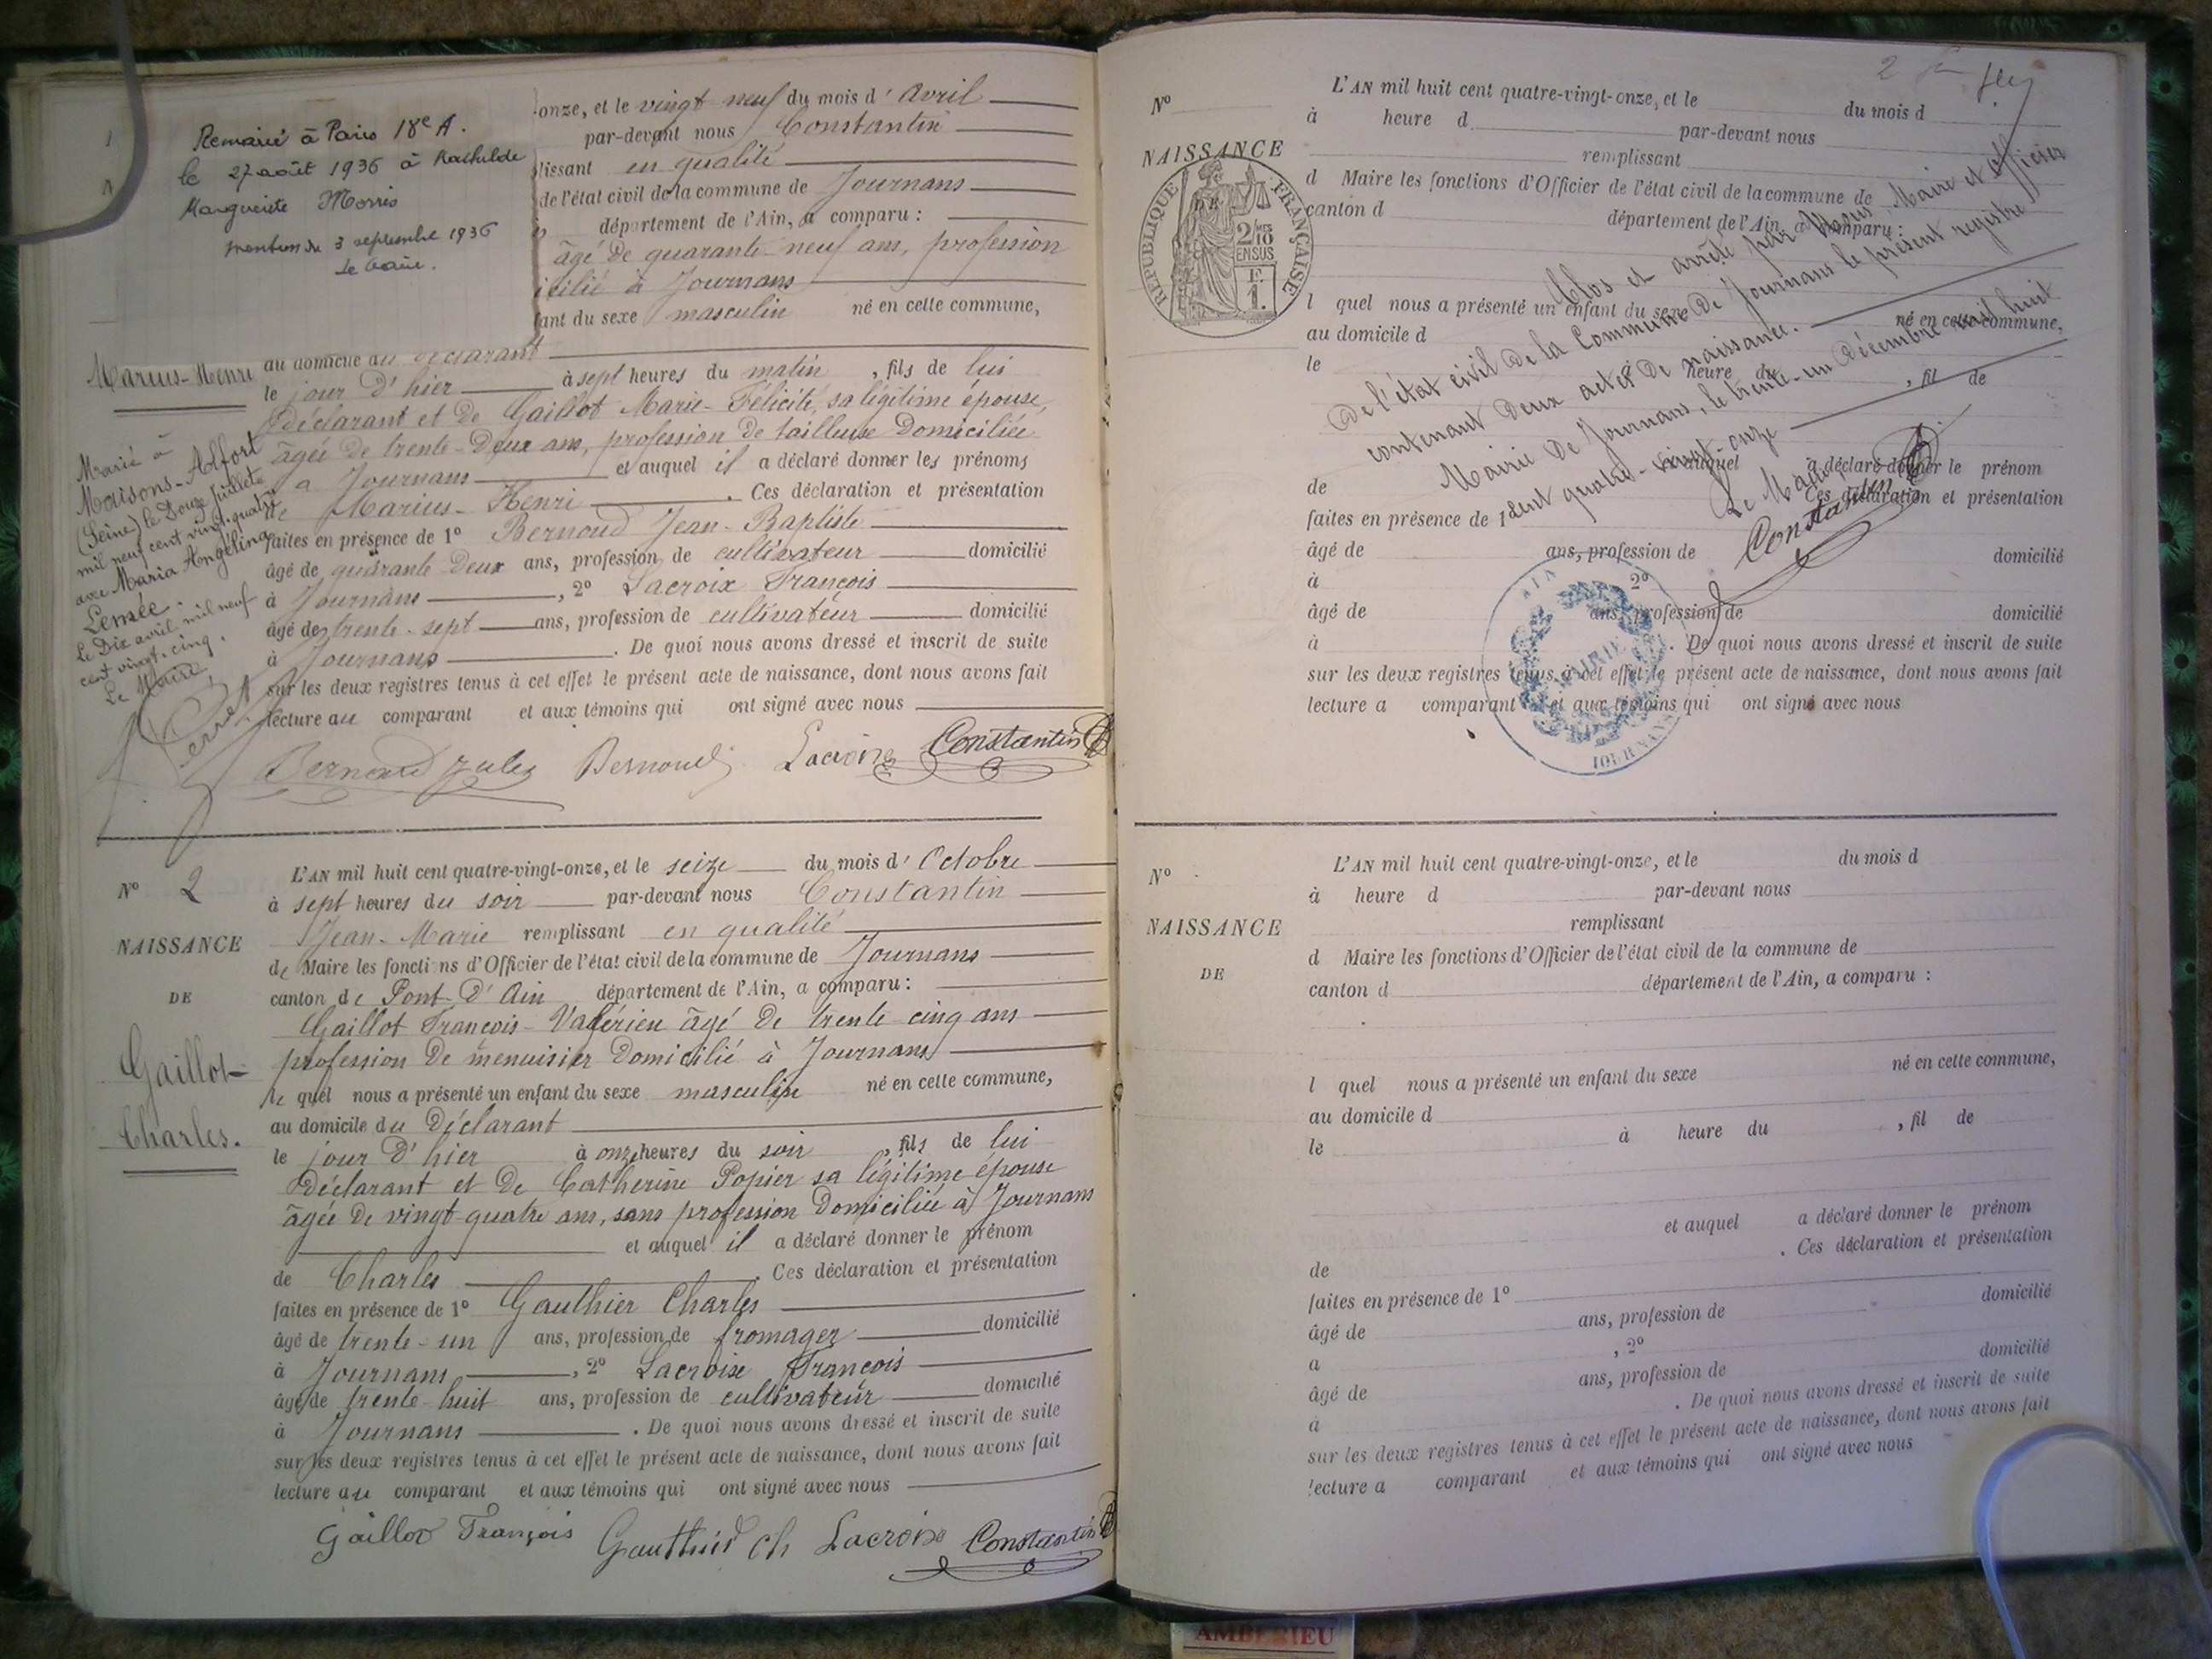 Remarié à Paris 18e A.
le 27 août 1936 à Rachilde
Marguerite Morris
mention du 3 septembre 1936
Le Maire.
onze, et le vingt neuf du mois d'Avril
par-devant nous Constantin
lissant en qualité
de l'état civil de la commune de Journans
département de l'Ain, a comparu :
âgé de quarante-neuf ans, profession
icilié à Journans
fant du sexe masculin né en cette commune,
Marius-Henri
au domicile du déclarant
le jour d'hier à sept heures du matin, fils de lui
déclarant et de Gaillot Marie-Félicité, sa légitime épouse,
âgée de trente-deux ans, profession de tailleuse domiciliée
à Journans et auquel il a déclaré donner les prénoms
de Marius-Henri. Ces déclaration et présentation
faites en présence de 1º Bernoud Jean-Baptiste
âgé de quarante deux ans, profession de cultivateur domicilié
à Journans, 2º Lacroix François
âgé de trente-sept ans, profession de cultivateur domicilié
à Journans. De quoi nous avons dressé et inscrit de suite
sur les deux registres tenus à cet effet le présent acte de naissance, dont nous avons fait
lecture au comparant et aux témoins qui ont signé avec nous
Marié à
Maisons-Alfort
(Seine) le Douze juillet
mil neuf cent vingt-quatre
avec Maria Angélina
Lemée.
Le Dix avril mil neuf
cent vingt-cinq.
Le Maire,
Bernoud Jules Bernoud Lacroix Constantin
Nº 2
NAISSANCE
DE
Gaillot
Charles.
L'AN mil huit cent quatre-vingt-onze, et le seize du mois d'Octobre
à sept heures du soir par-devant nous Constantin
Jean-Marie remplissant en qualité
de Maire les fonctions d'Officier de l'état civil de la commune de Journans
canton de Pont-d'Ain département de l'Ain, a comparu :
Gaillot François-Valérien âgé de trente cinq ans
profession de menuisier domicilié à Journans
le quel nous a présenté un enfant du sexe masculin né en cette commune,
au domicile du déclarant
le jour d'hier à onze heures du soir, fils de lui
déclarant et de Catherine Popier sa légitime épouse
âgée de vingt-quatre ans, sans profession domiciliée à Journans
et auquel il a déclaré donner le prénom
de Charles. Ces déclaration et présentation
faites en présence de 1º Gauthier Charles
âgé de trente-un ans, profession de fromager domicilié
à Journans, 2º Lacroix François
âgé de trente-huit ans, profession de cultivateur domicilié
à Journans. De quoi nous avons dressé et inscrit de suite
sur les deux registres tenus à cet effet le présent acte de naissance, dont nous avons fait
lecture au comparant et aux témoins qui ont signé avec nous
Gaillot François Gauthier Ch Lacroix Constantin
Nº
NAISSANCE
RÉPUBLIQUE FRANÇAISE
2 MES 10
EN SUS
F
1.
L'AN mil huit cent quatre-vingt-onze, et le du mois d
à heure d par-devant nous
remplissant
d Maire les fonctions d'Officier de l'état civil de la commune de
canton d département de l'Ain, a comparu :
l quel nous a présenté un enfant du sexe né en cette commune,
au domicile d
le à heure du, fil de
de et auquel a déclaré donner le prénom
Ces déclaration et présentation
faites en présence de 1º
âgé de ans, profession de domicilié
à 2º
âgé de ans, profession de domicilié
à. De quoi nous avons dressé et inscrit de suite
sur les deux registres tenus à cet effet le présent acte de naissance, dont nous avons fait
lecture a comparant et aux témoins qui ont signé avec nous
Clos et arrêté par Nous Maire et Officier
de l'état civil de la Commune de Journans le présent registre
contenant deux actes de naissance.
Mairie de Journans, le trente-un décembre mil huit
cent quatre-vingt-onze
Le Maire,
Constantin
AIN
MAIRIE
JOURNANS
Nº
NAISSANCE
DE
L'AN mil huit cent quatre-vingt-onze, et le du mois d
à heure d par-devant nous
remplissant
d Maire les fonctions d'Officier de l'état civil de la commune de
canton d département de l'Ain, a comparu :
l quel nous a présenté un enfant du sexe né en cette commune,
au domicile d
le à heure du, fil de
et auquel a déclaré donner le prénom
de. Ces déclaration et présentation
faites en présence de 1º
âgé de ans, profession de domicilié
a, 2º
âgé de ans, profession de domicilié
à. De quoi nous avons dressé et inscrit de suite
sur les deux registres tenus à cet effet le présent acte de naissance, dont nous avons fait
lecture a comparant et aux témoins qui ont signé avec nous
AMBERIEU